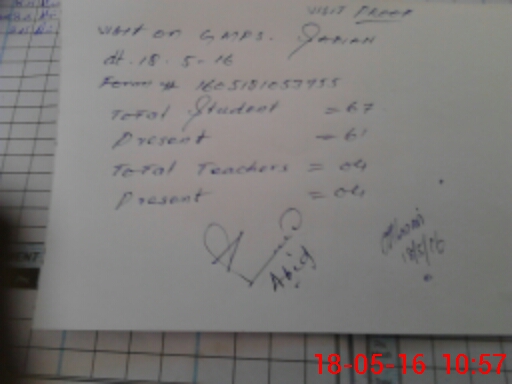 VISIT PROOF
VISIT ON GMPS.
dt. 18-5-16
Form # 1605181053955
Total Student = 67
Present = 61
Total Teachers = 04
Present = 04
18/5/16
18-05-16 10:57